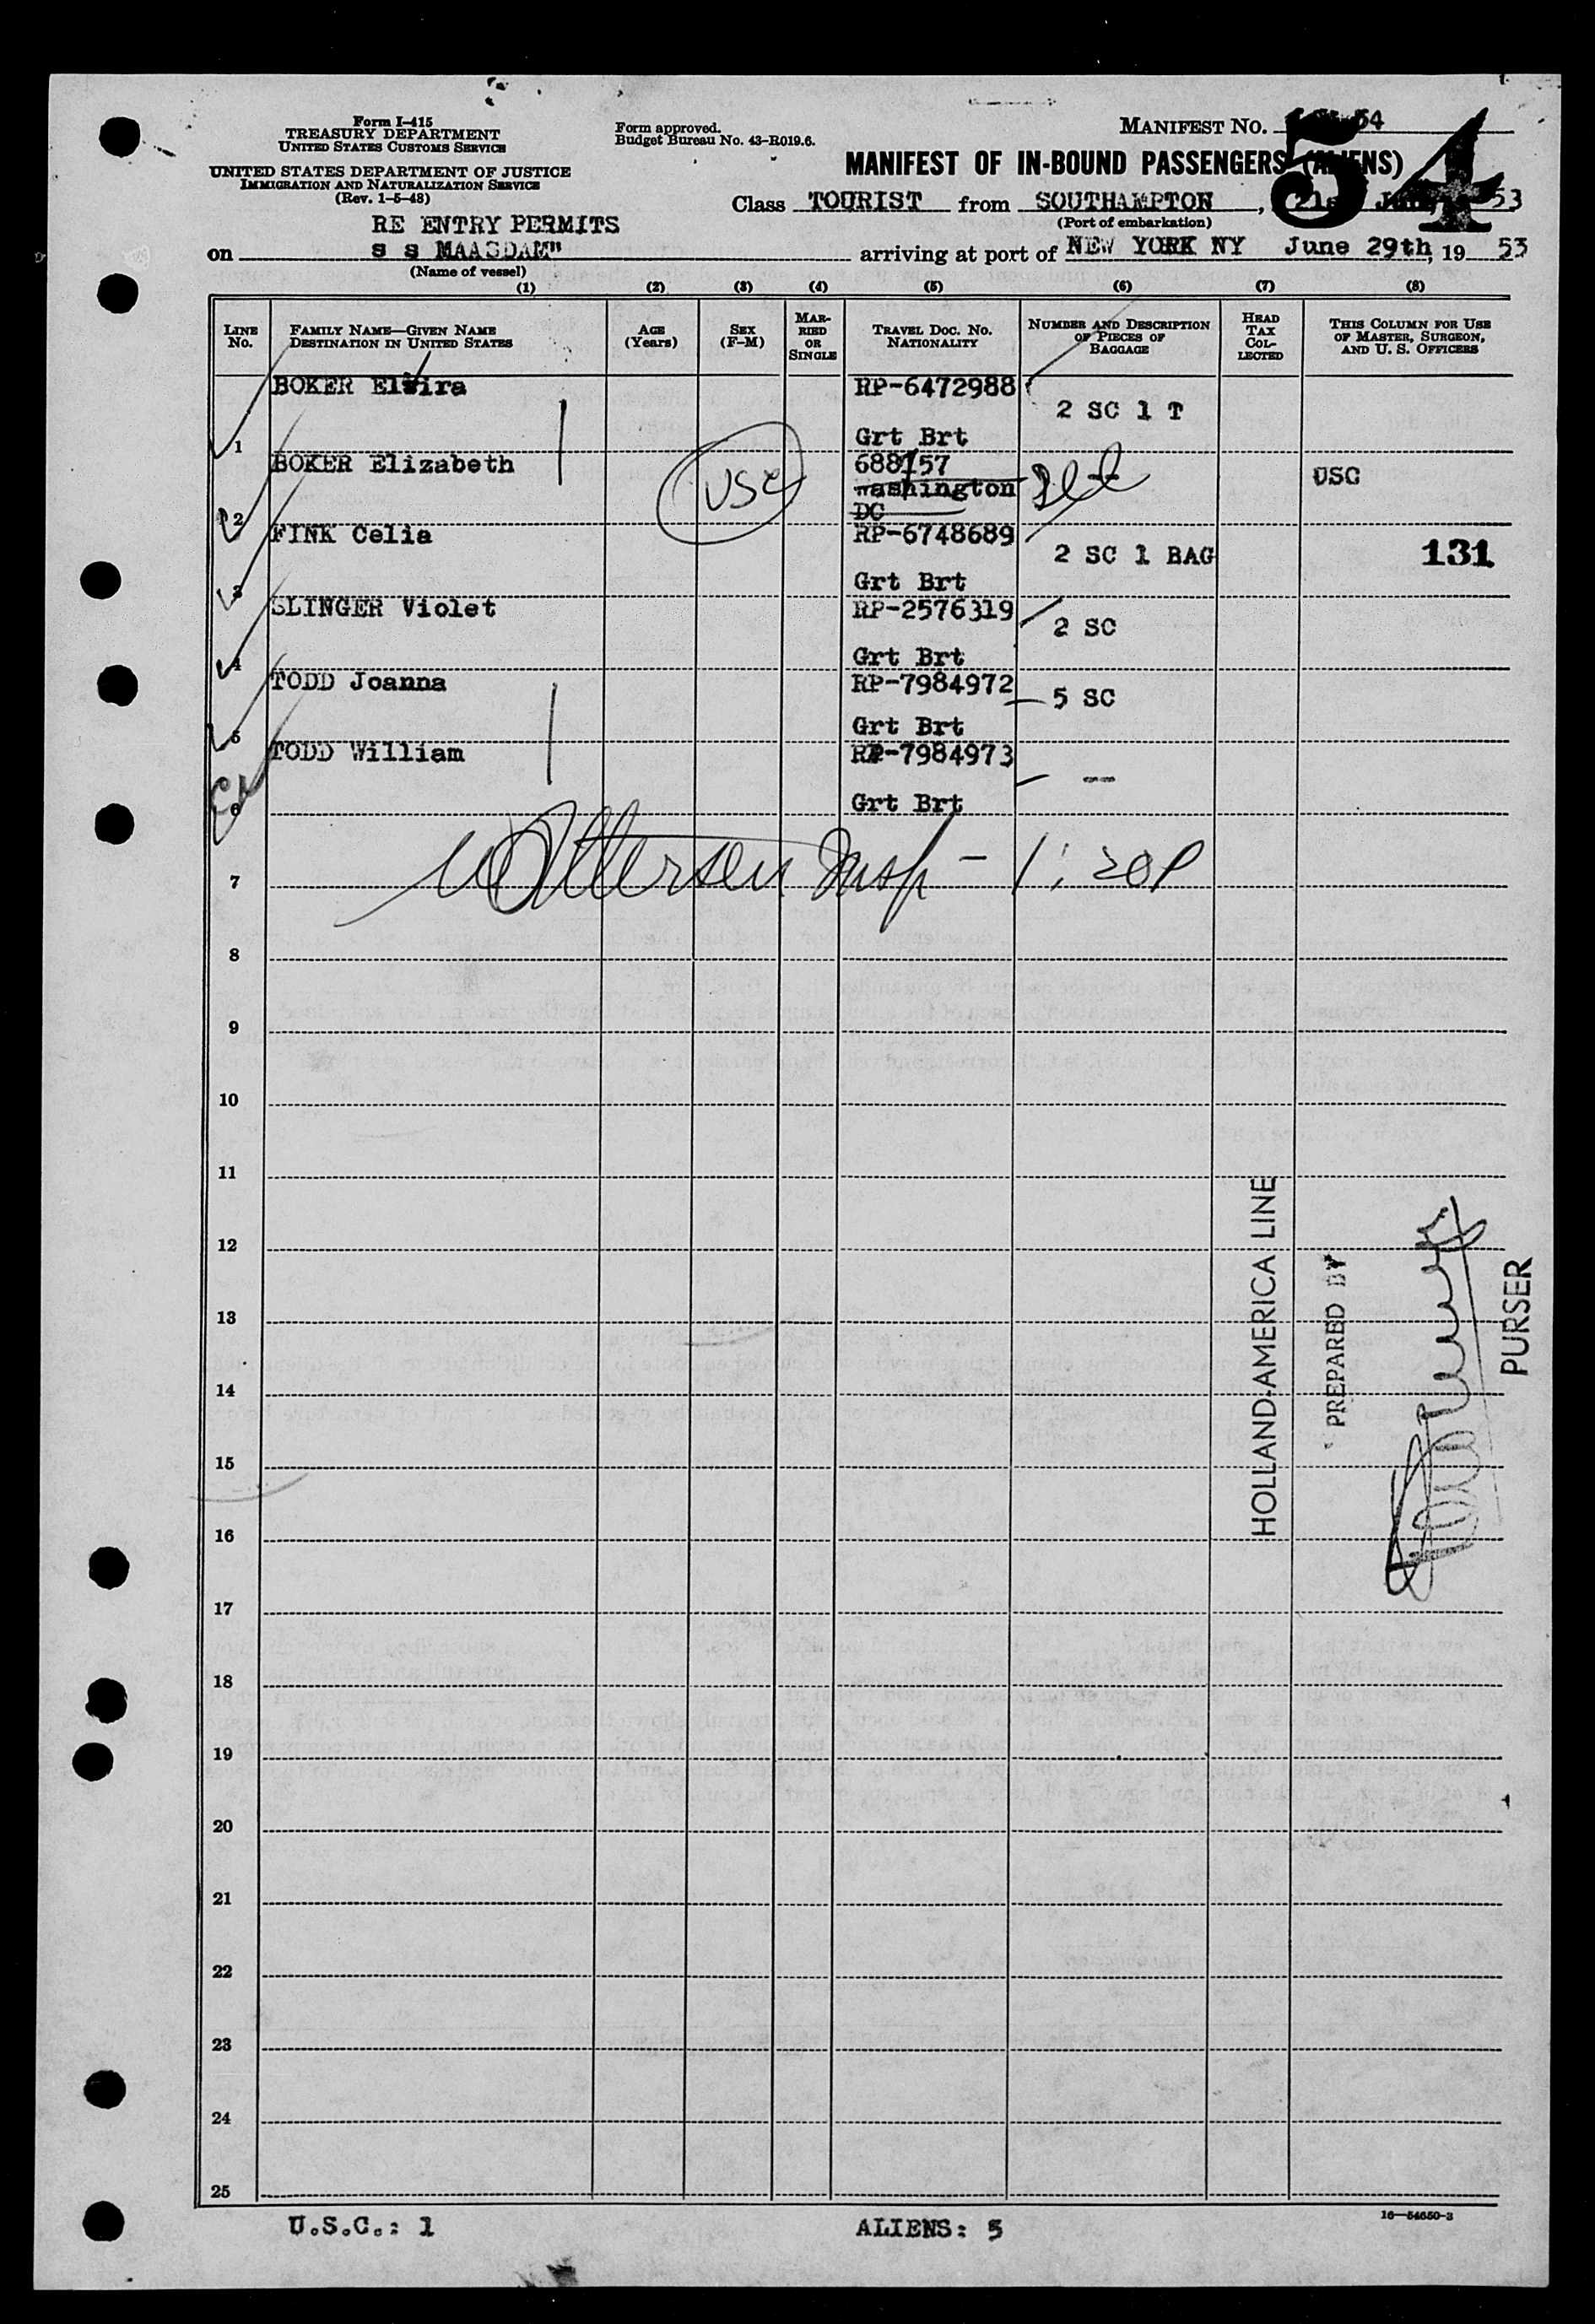 Form I-415
TREASURY DEPARTMENT
UNITED STATES CUSTOMS SERVICE
UNITED STATES DEPARTMENT OF JUSTICE
IMMIGRATION AND NATURALIZATION SERVICE
(Rev. 1-5-48)
Form approved.
Budget Bureau No. 43-R019.6.
MANIFEST NO. 54
54
MANIFEST OF IN-BOUND PASSENGERS (ALIENS)
Class TOURIST from SOUTHAMPTON, 53
(Port of embarkation)
RE ENTRY PERMITS
on s s MAASDAM" arriving at port of NEW YORK NY June 29th, 19 53
(Name of vessel)
(1) (2) (3) (4) (5) (6) (7) (8)
LINE No.
FAMILY NAME—GIVEN NAME
DESTINATION IN UNITED STATES
AGE (Years)
SEX (F-M)
MARRIED OR SINGLE
TRAVEL DOC. NO.
NATIONALITY
NUMBER AND DESCRIPTION OF PIECES OF BAGGAGE
HEAD TAX COLLECTED
THIS COLUMN FOR USE OF MASTER, SURGEON, AND U. S. OFFICERS
BOKER Elvira RP-6472988
2 SC 1 T
1 Grt Brt
BOKER Elizabeth 688157
USC Washington -- USC
2 DC
FINK Celia RP-6748689
2 SC 1 BAG 131
3 Grt Brt
SLINGER Violet RP-2576319
2 SC
4 Grt Brt
TODD Joanna RP-7984972
5 SC
5 Grt Brt
TODD William RP-7984973
--
6 Grt Brt
Insp - 1:20P
7
8
9
10
11
12
13
14
15
16
17
18
19
20
21
22
23
24
25
HOLLAND-AMERICA LINE
PREPARED BY
PURSER
U.S.C.: 1 ALIENS: 5
16—54650-3